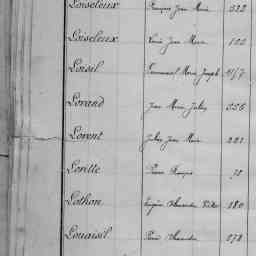 Loiseleux François Jean Marie 322
Loiseleux Louis Jean Marie 100
Loisil Emmanuel Marie Joseph
Lorand Jean Marie Julien 356
Lorent Julien Jean Marie 221
Loritte Pierre François 78
Lothon Eugène Alexandre Victor 180
Louaisil Pierre Alexandre 078